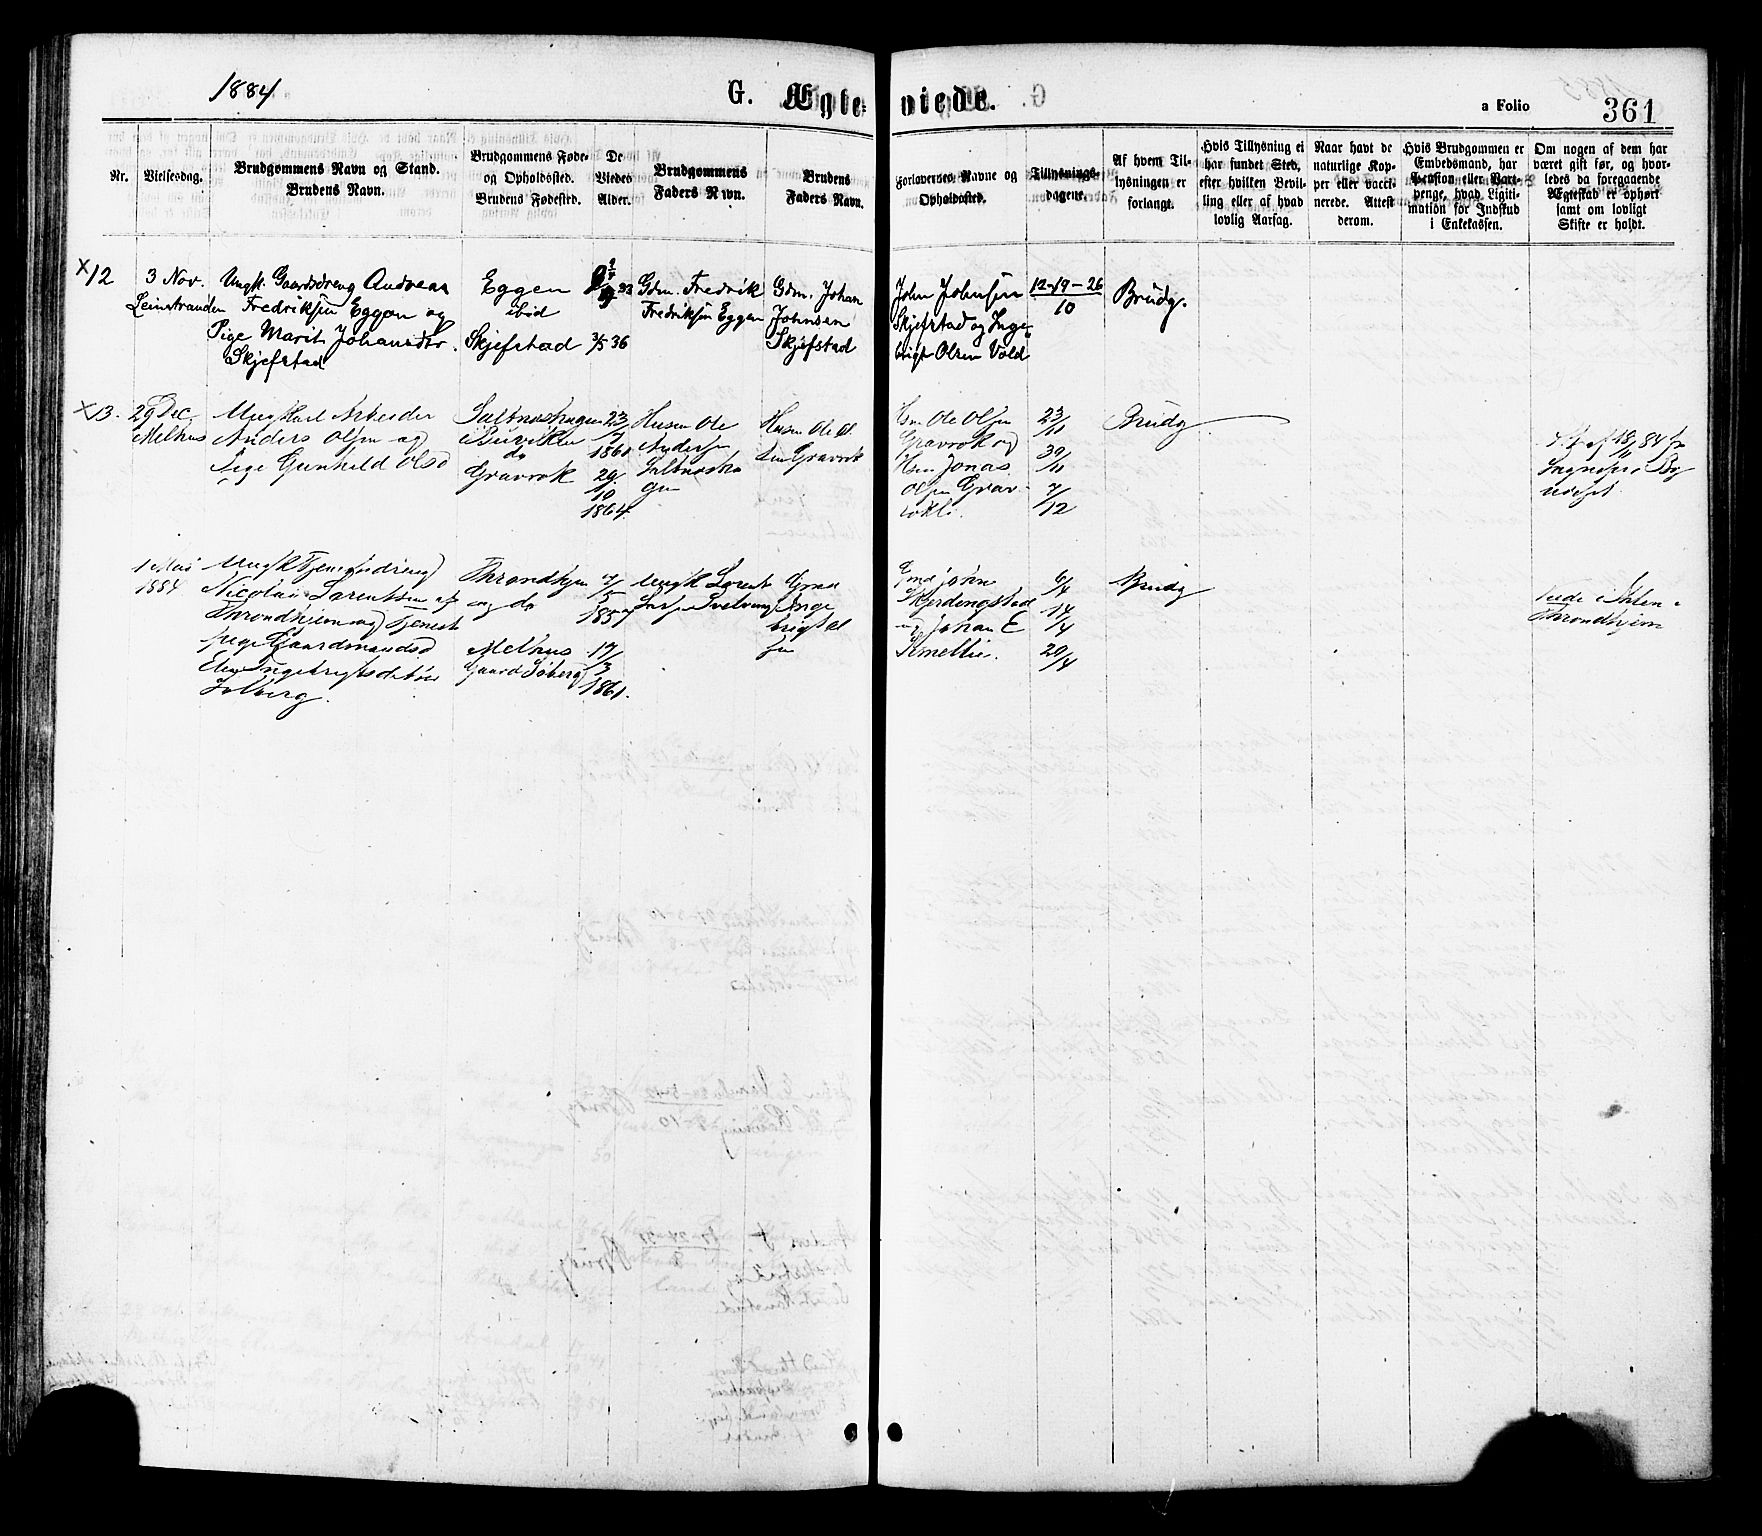 1884
G. Ægteviede.
a Folio 361
Nr.
Vielsesdag.
Brudgommens Navn og Stand.
Brudens Navn.
Brudgommens Føde-
og Opholdssted.
Brudens Fødested.
De
Viedes
Alder.
Brudgommens
Faders Navn.
Brudens
Faders Navn.
Forlovernes Navne og
Opholdssted.
Tillysnings-
dagene.
Af hvem Til-
lysningen er
forlangt.
Hvis Tillysning ei
har fundet Sted,
efter hvilken Bevil-
ling eller af hvad
lovlig Aarsag.
Naar havt de
naturlige Kop-
per eller vacci-
nerede. Attest
derom.
Hvis Brudgommen er
Embedsmand, har
Pension eller Vart-
penge, hvad Ligiti-
mation for Indskud
i Enkekassen.
Om nogen af dem har
været gift før, og hvor-
ledes da foregaaende
Ægteskab er ophørt
samt om lovligt
Skifte er holdt.
x12
3 Nov.
Leinstranden
Ungk. Gaardsdreng Andreas
Fredriksen Eggen og
Pige Marit Johansdr.
Skjefstad
Eggen
ibid
Skjefstad
3/5 36
Gdm. Fredrik
Fredriksen Eggen
Gdm. Johan
Johnsen
Skjefstad
John Johnsen
Skjefstad og Inge-
brigt Olsen Vold
12-19-26
10
Brudg.
x13.
29 Dec.
Melhus
Ungkarl Arbeider
Anders Olsen og
Pige Gunhild Olsd
Saltnæshagen
Buviken
do
Gravrok
23/7
1861
29/10
1864.
Husm Ole
Andersen
Saltnæsha
gen
Husm Ole Ol
sen Gravrok
Hm Ole Olsen
Gravrok og
Hm Jonas
Olsen Grav-
rokli.
23/11
30/11
7/12
Brudg
1 Mai
1884
Ungk Tjenestedreng
Nicolai Larentsen af
Throndhjem og Tjeneste
pige Gaardmandsd
Elen Ingebrigtsdatter
Solberg.
Throndhjem
og do
Melhus
Gaard Søberg
17/3
1861.
Ungk Lorents
Gmd
Inge
brigt Ol
sen
Gmd Jørn
Skjerdingstad
og Johan E
Kmellie.
6/4
14/4
20/4
Brudg
viede i Ihlen i
Throndhjem